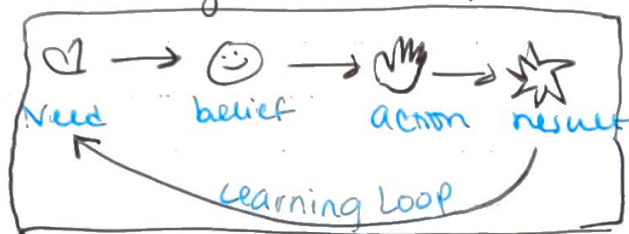 Need belief action result
Learning Loop